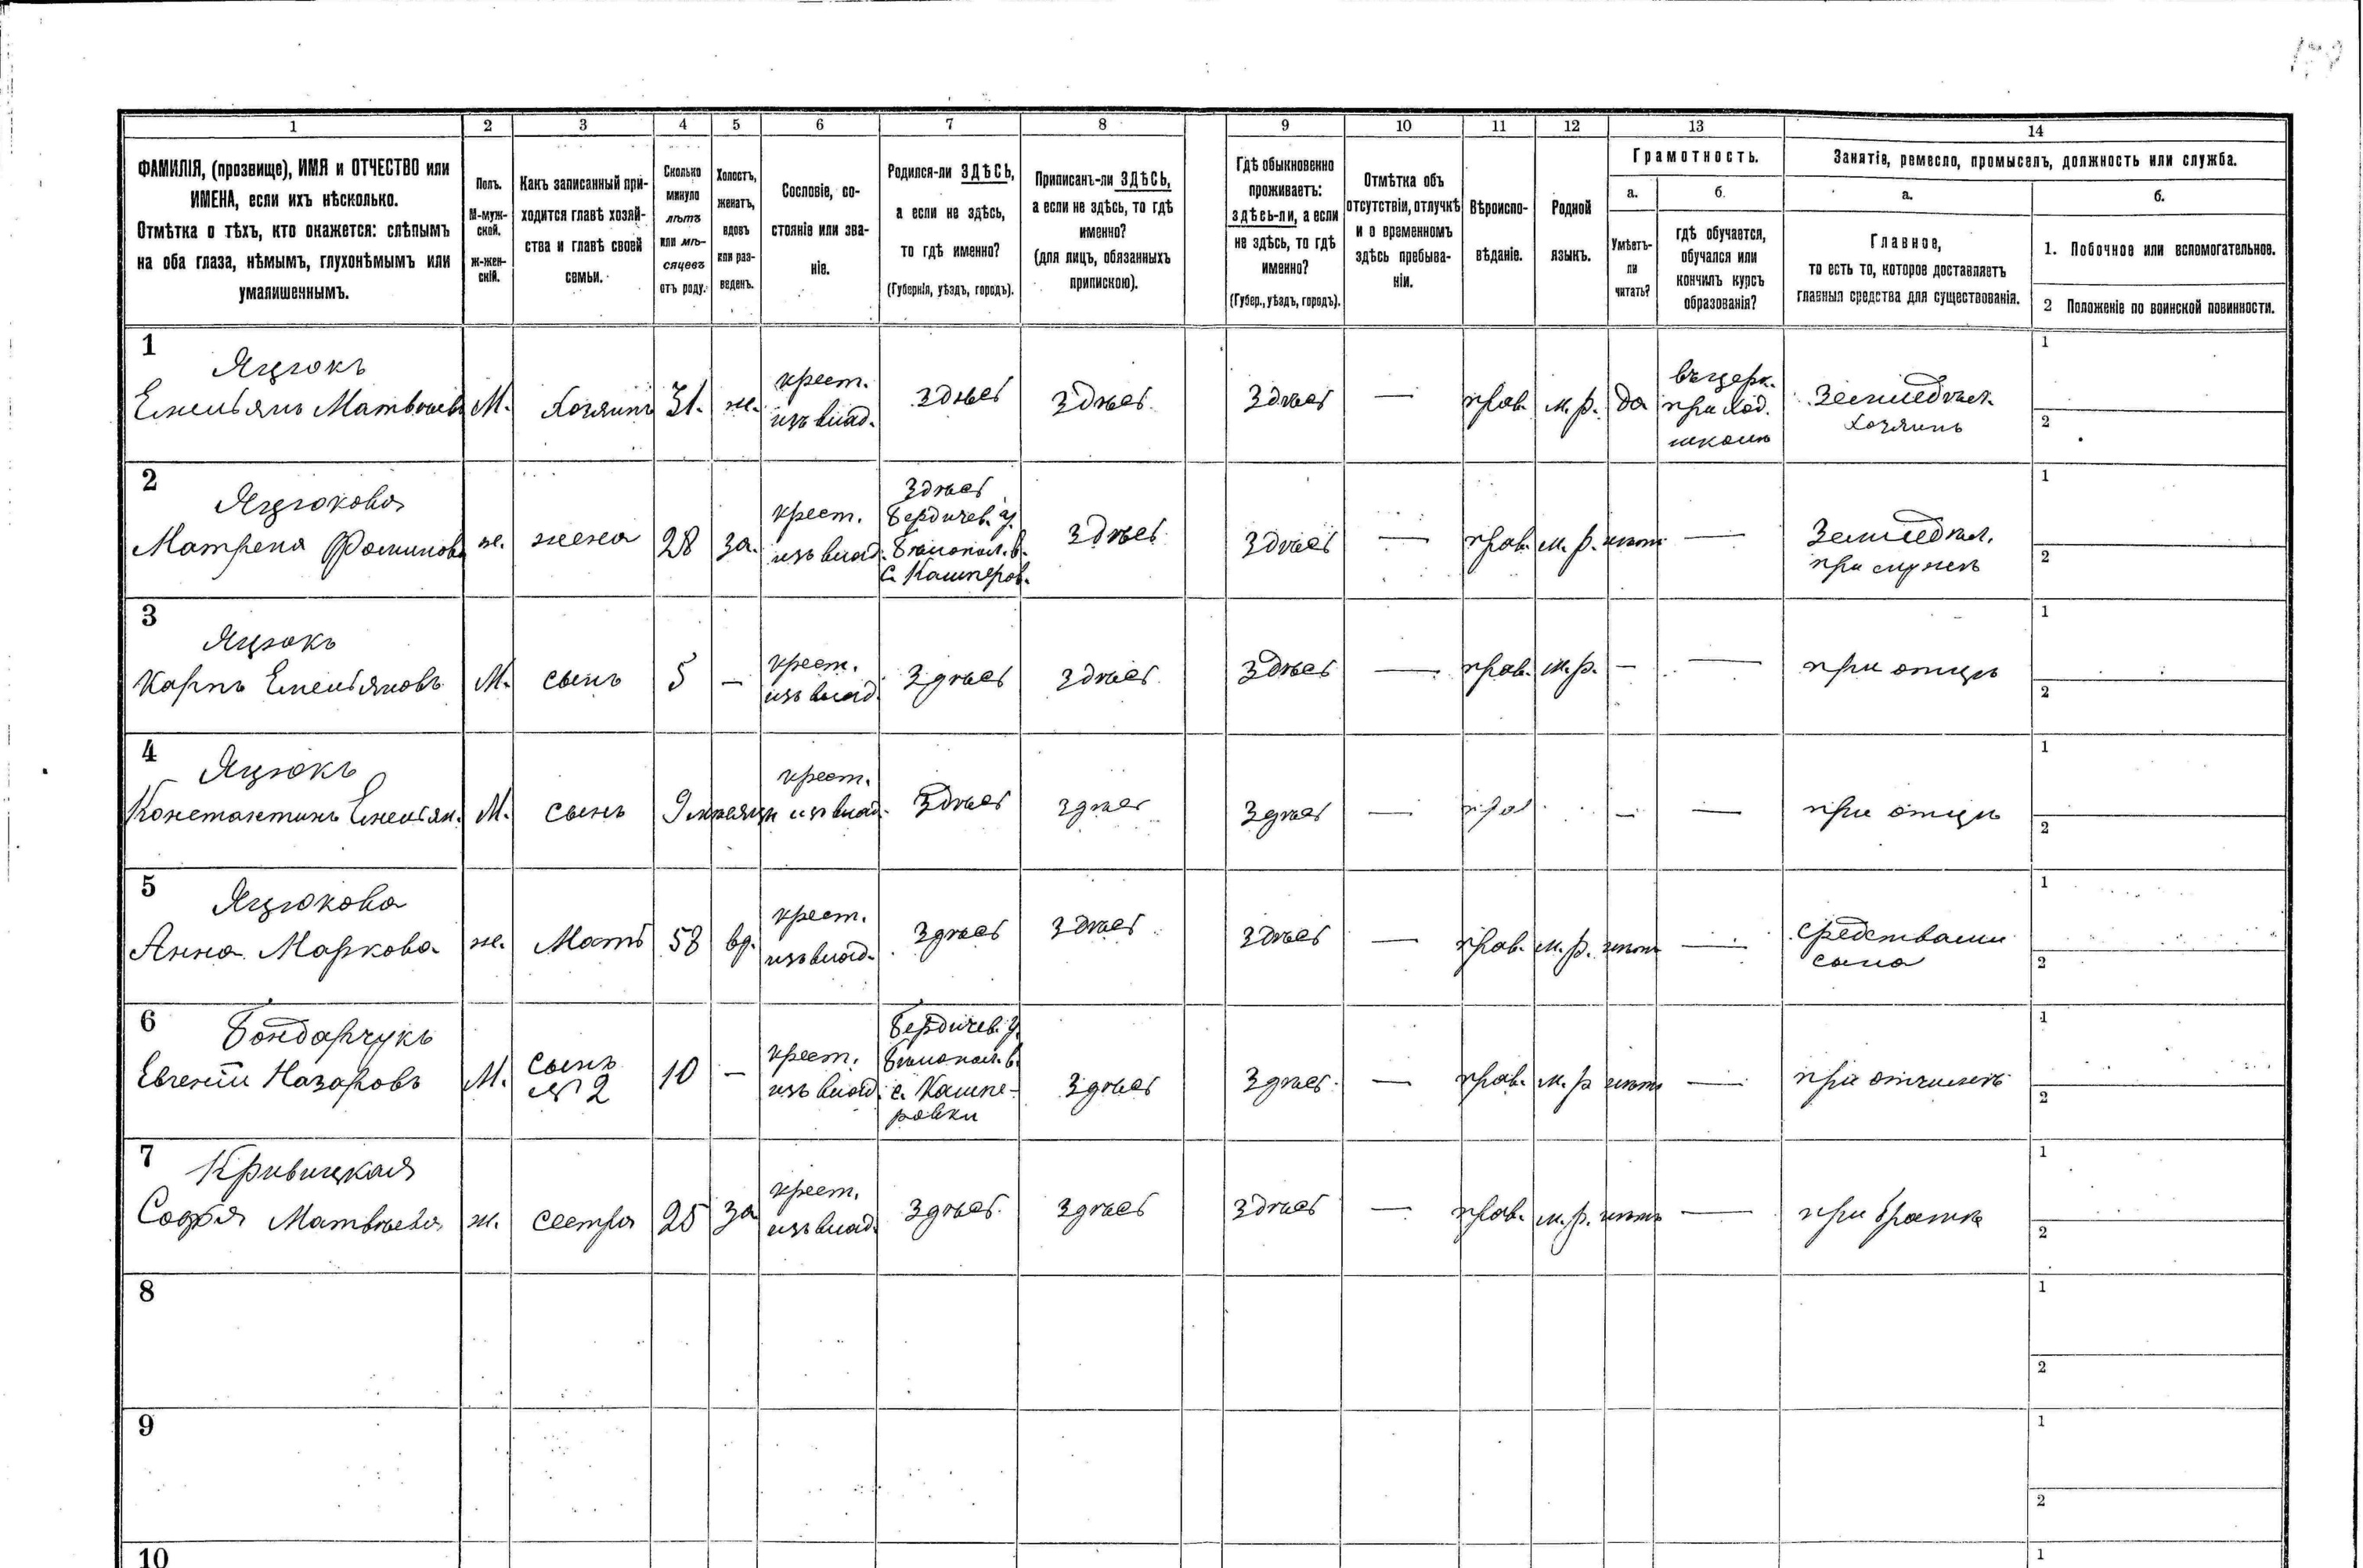 1 2 3 4 5 6 7 8 9 10 11 12 13 14
ФАМИЛІЯ, (прозвище), ИМЯ и ОТЧЕСТВО или
ИМЕНА, если ихъ нѣсколько.
Отмѣтка о тѣхъ, кто окажется: слѣпымъ
на оба глаза, нѣмымъ, глухонѣмымъ или
умалишеннымъ.
Полъ.
М-муж-
ской.
ж-жен-
скій.
Какъ записанный при-
ходится главѣ хозяй-
ства и главѣ своей
семьи.
Сколько
минуло
лѣтъ
или мѣ-
сяцевъ
отъ роду.
Холостъ,
женатъ,
вдовъ
или раз-
веденъ.
Сословіе, со-
стояніе или зва-
ніе.
Родился-ли ЗДѢСЬ,
а если не здѣсь,
то гдѣ именно?
(Губернія, уѣздъ, городъ).
Приписанъ-ли ЗДѢСЬ,
а если не здѣсь, то гдѣ
именно?
(для лицъ, обязанныхъ
припискою).
Гдѣ обыкновенно
проживаетъ:
здѣсь-ли, а если
не здѣсь, то гдѣ
именно?
(Губер., уѣздъ, городъ).
Отмѣтка объ
отсутствіи, отлучкѣ
и о временномъ
здѣсь пребыва-
ніи.
Вѣроиспо-
вѣданіе.
Родной
языкъ.
Грамотность.
а.
Умѣетъ-
ли
читать?
б.
гдѣ обучается,
обучался или
кончилъ курсъ
образованія?
Занятіе, ремесло, промыселъ, должность или служба.
а.
Главное,
то есть то, которое доставляетъ
главныя средства для существованія.
б.
1. Побочное или вспомогательное.
2 Положеніе по воинской повинности.
1
Яцюкъ
Емельянъ Матвѣевъ
М.
Хозяинъ
31.
ж.
крест.
изъ влад.
здѣсь
здѣсь
здѣсь
—
прав.
м. р.
да
въ церк.
приход.
школѣ
Земледѣл.
хозяинъ
1
2
2
Яцюкова
Матрена Фоминова
ж.
жена
28
за.
крест.
изъ влад.
Здѣсь
Бердичев. у.
Бѣлопол. в.
с. Кашперов.
здѣсь
здѣсь
—
прав.
м. р.
нѣтъ
—
Земледѣл.
при мужѣ
1
2
3
Яцюкъ
Карпъ Емельяновъ
М.
сынъ
5
—
крест.
изъ влад.
здѣсь
здѣсь
здѣсь
—
прав.
м. р.
—
—
при отцѣ
1
2
4
Яцюкъ
Константинъ Емельян.
М.
сынъ
9 мѣсяц.
крест.
изъ влад.
здѣсь
здѣсь
здѣсь
—
прав
—
—
при отцѣ
1
2
5
Яцюкова
Анна Маркова
ж.
Мать
58
вд.
крест.
изъ влад.
здѣсь
здѣсь
здѣсь
—
прав.
м. р.
нѣтъ
—
средствами
сына
1
2
6
Бондарчукъ
Евгеній Назаровъ
М.
сынъ
№ 2
10
—
крест.
изъ влад.
Бердичев. у.
Бѣлопол. в.
с. Кашпе-
ровки
здѣсь
здѣсь
—
прав.
м. р
нѣтъ
—
при отчимѣ
1
2
7
Кривицкая
Софія Матвѣева
ж.
сестра
25
за
крест.
изъ влад.
здѣсь
здѣсь
здѣсь
—
прав.
м. р.
нѣтъ
—
при братѣ
1
2
8
1
2
9
1
2
10
1